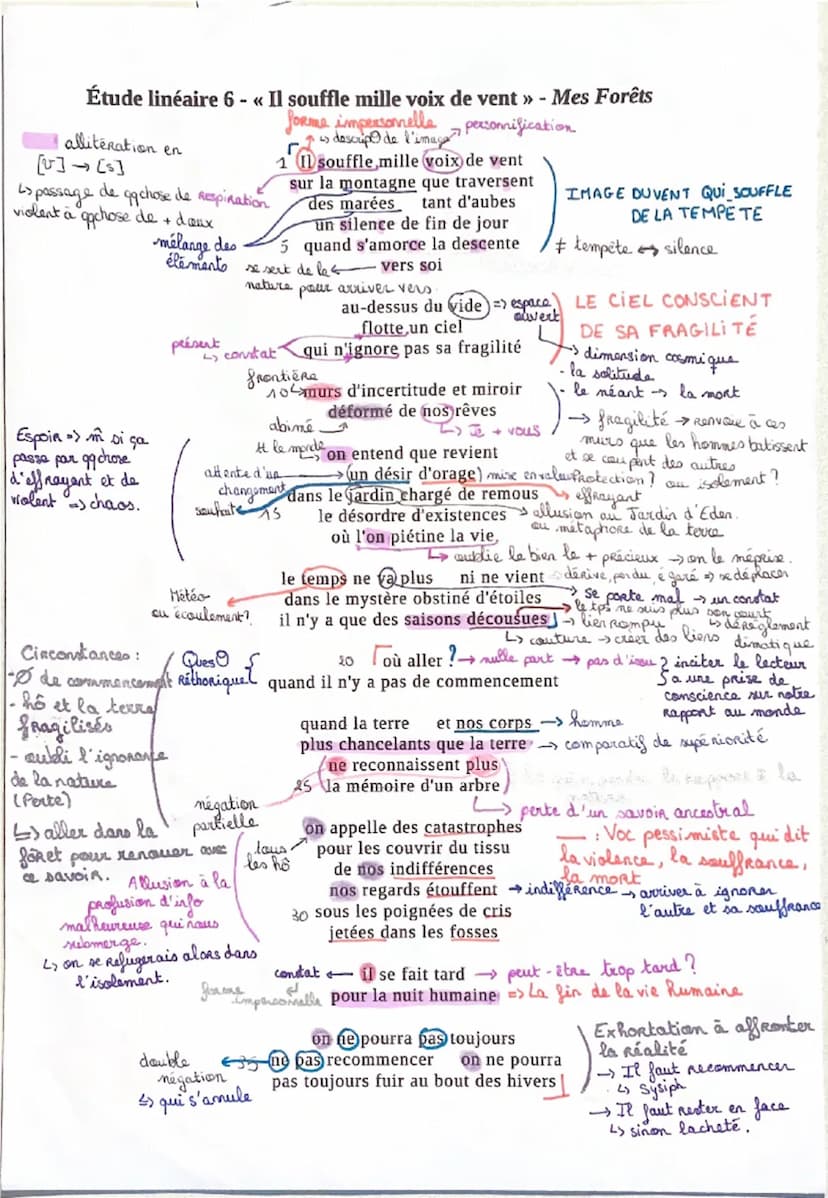 Étude linéaire 6 - « Il souffle mille voix de vent » - Mes Forêts
forme impersonnelle
↳ descripØ de l'image
→ personnification
alliteration en
[v] → [s]
↳ passage de qqchose de
violent à qqchose de + doux
RESPIRATION
mélange des
éléments
1 Il souffle mille voix de vent
sur la montagne que traversent
des marées tant d'aubes
un silence de fin de jour
5 quand s'amorce la descente
vers soi
IMAGE DU VENT QUI SOUFFLE
DE LA TEMPÊTE
≠ tempête ↔ silence
se sert de la
nature pour arriver vers
au-dessus du vide
flotte un ciel
qui n'ignore pas sa fragilité
=> espace
ouvert
LE CIEL CONSCIENT
DE SA FRAGILITÉ
présent
↳ constat
→ dimension cosmique
- la solitude
- le néant → la mort
→ fragilité → renvoie à ces
murs que les hommes batissent
et se coupent des autres
Protection ? ou isolement ?
frontière
10 murs d'incertitude et miroir
déformé de nos rêves
abimé
↳ Je + vous
Espoir => m̂ si ça
passe par qqchose
d'effrayant et de
violent => chaos.
tt le monde
on entend que revient
(un désir d'orage) mise en valeur
attente d'un
changement
souhait
dans le jardin chargé de remous
→ effrayant
15 le désordre d'existences
→ allusion au Jardin d'Eden
ou métaphore de la terre
où l'on piétine la vie,
↳ oublie le bien le + précieux → on le méprise.
le temps ne va plus ni ne vient
dérive, perdu, égaré => se déplacer
→ se porte mal → un constat
dans le mystère obstiné d'étoiles
→ le tps ne suis plus son court
il n'y a que des saisons décousues
→ lien rompu
↳ dérèglement
climatique
↳ couture → créer des liens
Météo
ou écoulement?
Circonstances :
- Ø de commencement
- hô et la terre
fragilisés
- oubli l'ignorance
de la nature
(Perte)
↳ aller dans la
fôret pour renouer avec
ce savoir.
QuesØ
Réthorique
20 où aller ?
→ nulle part → pas d'issu
quand il n'y a pas de commencement
inciter le lecteur
à une prise de
conscience sur notre
rapport au monde
quand la terre et nos corps
→ homme
plus chancelants que la terre
→ comparatif de supériorité
ne reconnaissent plus
25 la mémoire d'un arbre
négation
partielle
↳ perte d'un savoir ancestral
on appelle des catastrophes
pour les couvrir du tissu
de nos indifférences
nos regards étouffent
30 sous les poignées de cris
jetées dans les fosses
tous
les hô
: Voc pessimiste qui dit
la violence, la souffrance,
la mort
→ indifférence → arriver à ignorer
l'autre et sa souffrance
Allusion à la
profusion d'info
malheureuse qui nous
submerge.
↳ on se refugerais alors dans
l'isolement.
constat ←
il se fait tard
→ peut-être trop tard ?
forme
impersonnelle
pour la nuit humaine
=> La fin de la vie humaine
on ne pourra pas toujours
35 ne pas recommencer on ne pourra
pas toujours fuir au bout des hivers
double
négation
↳ qui s'annule
Exhortation à affronter
la réalité
→ Il faut recommencer
↳ Sysiph
→ Il faut rester en face
↳ sinon lacheté.